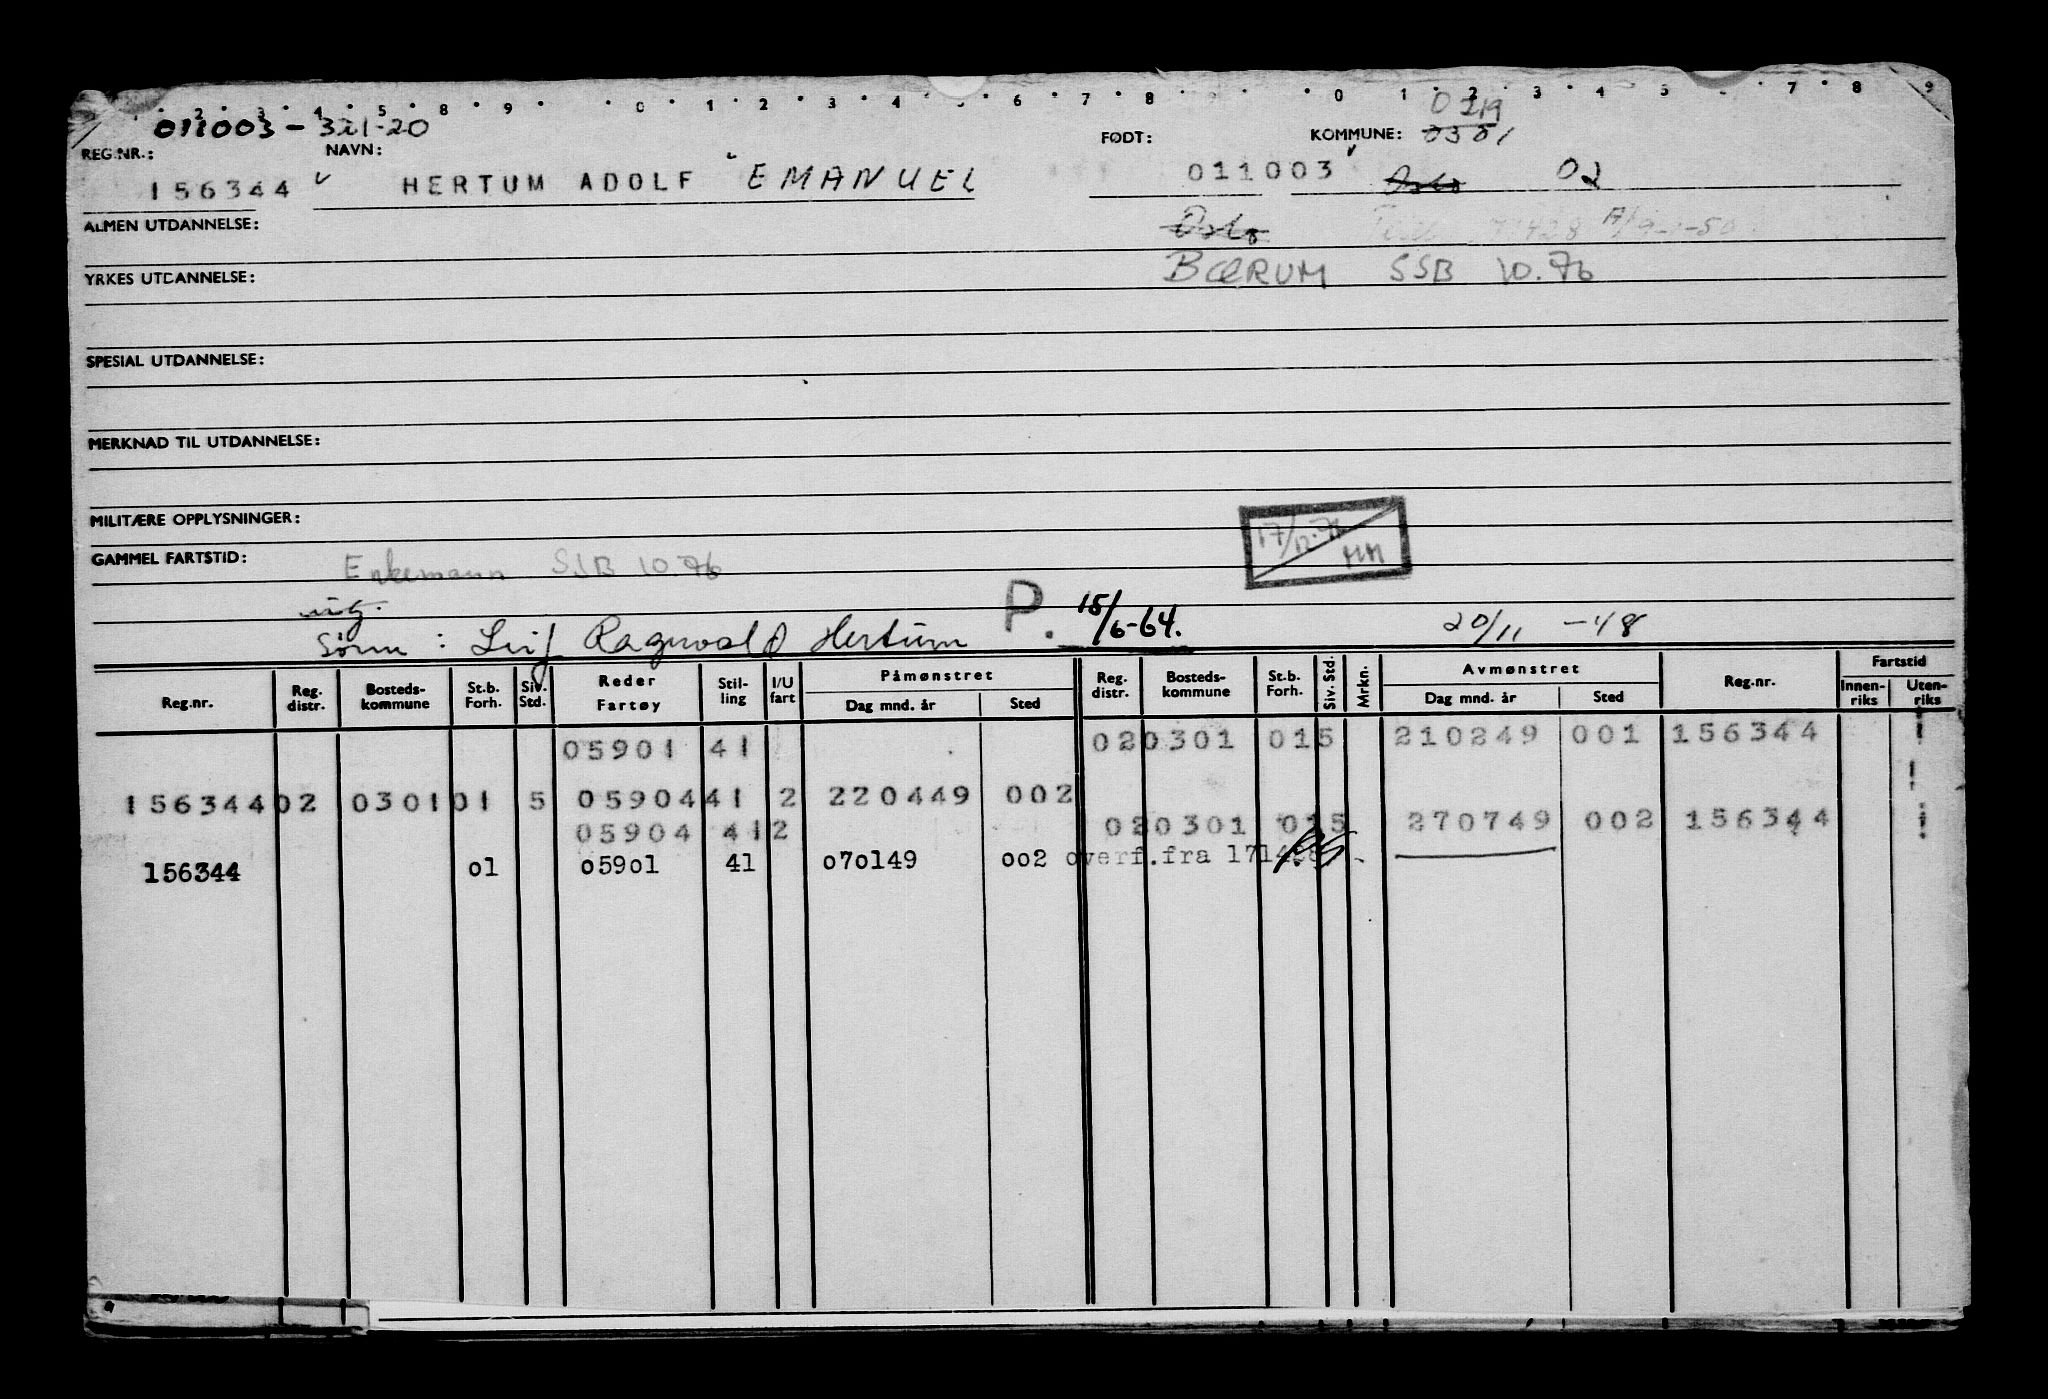 2 3 4 5 8 9 0 1 2 3 4 5 6 7 8 9 0 1 2 3 4 5 7 8 9
011003-321-20
0219
REG.NR.: NAVN: FØDT: KOMMUNE: 0301
156344 HERTUM ADOLF EMANUEL 011003 Oslo 02
ALMEN UTDANNELSE: Oslo 71428 A/9-1-50
YRKES UTDANNELSE: BÆRUM SSB 10.76
SPESIAL UTDANNELSE:
MERKNAD TIL UTDANNELSE:
MILITÆRE OPPLYSNINGER:
17/12-76 HH
GAMMEL FARTSTID: Enkemann SSB 10.76
P. 15/6-64.
Sønn: Leif Ragnvald Hertum 20/11-48
Reg.nr. Reg. distr. Bosteds-kommune St.b. Forh. Siv. Std. Reder Fartøy Stil-ling I/U fart Påmønstret Dag mnd. år Sted Reg. distr. Bosteds-kommune St.b. Forh. Siv. Std. Mrkn. Avmønstret Dag mnd. år Sted Reg.nr. Fartstid Innen-riks Uten-riks
05901 41 020301 015 210249 001 156344
156344 02 0301 01 5 05904 41 2 220449 002
05904 41 2 020301 015 270749 002 156344
156344 01 05901 41 070149 002 overf.fra 171428